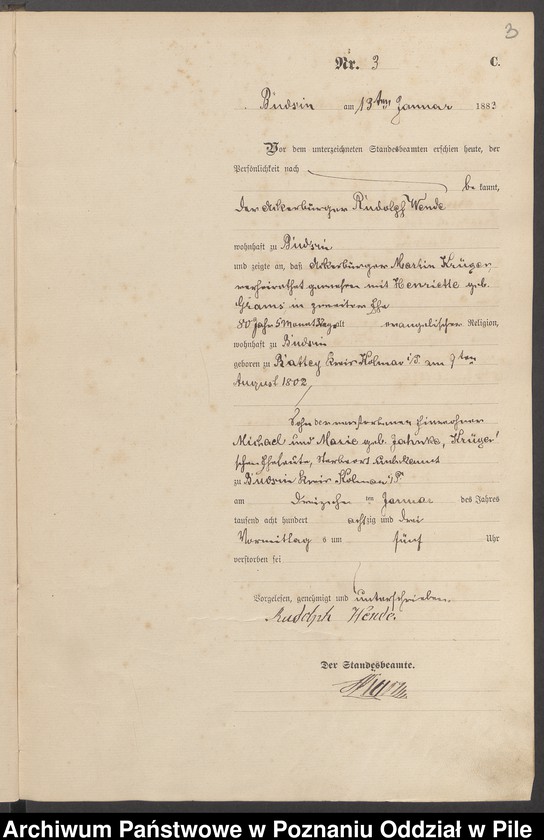 3
Nr. 3 C.
Budsin am 13ten Januar 1883
Vor dem unterzeichneten Standesbeamten erschien heute, der
Persönlichkeit nach
be kannt,
der Ackerbürger Rudolph Wende
wohnhaft zu Budsin
und zeigte an, daß Ackerbürger Martin Krüger,
verheirathet gewesen mit Henriette geb.
Grams in zweiter Ehe
80 Jahr 5 Monat Tage alt evangelischer Religion,
wohnhaft zu Budsin
geboren zu Kreis Kolmar i/P. am 9ten
August 1802
Sohn der verstorbenen Einwohner
Michael und Marie geb. Jahnke, Krüger'
schen Eheleute, Sterbeort unbekannt
zu Budsin Kreis Kolmar i/P
am dreizehn ten Januar des Jahres
tausend acht hundert achtzig und drei
Vormittags um fünf Uhr
verstorben sei
Vorgelesen, genehmigt und unterschrieben.
Rudolph Wende.
Der Standesbeamte.
Archiwum Państwowe w Poznaniu Oddział w Pile